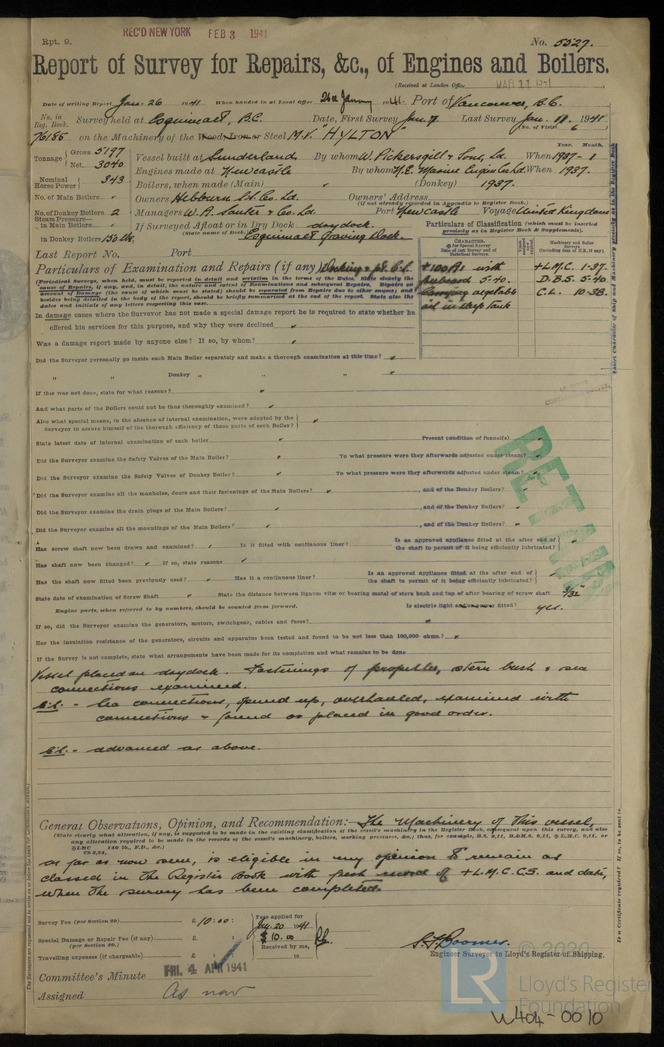 REC'D NEW YORK FEB 3 1941
Rpt. 9. No. 5527.
Report of Survey for Repairs, &c., of Engines and Boilers.
(Received at London Office MAR 11 1941
Date of writing Report Jan. 26 1941 When handed in at Local Office 26th January 1941 Port of Vancouver, B.C.
No. in Reg. Book. Survey held at Esquimalt, B.C. Date, First Survey Jan. 7. Last Survey Jan. 18. 1941
(No. of Visits 6)
76185 on the Machinery of the Wood, Iron or Steel M.V. "HYLTON"
Tonnage Gross 5197 Net 3040
Vessel built at Sunderland By whom W. Pickersgill & Sons, Ld. When 1937 - 1
Engines made at Newcastle By whom N.E. Marine Engin Co Ld. When 1937.
Nominal Horse Power 343 Boilers, when made (Main) " (Donkey) 1937.
No. of Main Boilers " Owners Hebburn S.S. Co. Ld. Owners' Address
(if not already recorded in Appendix to Register Book.)
No. of Donkey Boilers 2 Managers W. A. Souter & Co. Ld. Port Newcastle Voyage United Kingdom
Steam Pressure in Main Boilers " If Surveyed Afloat or in Dry Dock drydock.
(State name of Dock.) Esquimalt Graving Dock.
in Donkey Boilers 150 lb.
Particulars of Classification (which must be inserted precisely as in Register Book & Supplements).
Last Report No. Port
Particulars of Examination and Repairs (if any) Docking & pt. C.S.
+100A1 with freeboard 5.40. Carrying vegetable oil in deep tank
+L.M.C. 1-37.
D.B.S. 5-40
C.L. 10-38.
In damage cases where the Surveyor has not made a special damage report he is required to state whether he
offered his services for this purpose, and why they were declined "
Was a damage report made by anyone else? If so, by whom? "
Did the Surveyor personally go inside each Main Boiler separately and make a thorough examination at this time? "
" " Donkey " " " "
If this was not done, state for what reasons? "
And what parts of the Boilers could not be thus thoroughly examined? "
Also what special means, in the absence of internal examination, were adopted by the
Surveyor to assure himself of the thorough efficiency of those parts of each Boiler? "
State latest date of internal examination of each boiler " Present condition of funnel(s). "
Did the Surveyor examine the Safety Valves of the Main Boiler? " To what pressure were they afterwards adjusted under steam? "
Did the Surveyor examine the Safety Valves of Donkey Boiler? " To what pressure were they afterwards adjusted under steam? "
Did the Surveyor examine all the manholes, doors and their fastenings of the Main Boilers? " , and of the Donkey Boilers? "
Did the Surveyor examine the drain plugs of the Main Boilers? " , and of the Donkey Boilers? "
Did the Surveyor examine all the mountings of the Main Boilers? " , and of the Donkey Boilers? "
Has screw shaft now been drawn and examined? " Is it fitted with continuous liner? " Is an approved appliance fitted at the after end of the shaft to permit of it being efficiently lubricated? "
Has shaft now been changed? " If so, state reasons "
Has the shaft now fitted been previously used? " Has it a continuous liner? " Is an approved appliance fitted at the after end of the shaft to permit of it being efficiently lubricated? "
State date of examination of Screw Shaft " State the distance between lignum vitæ or bearing metal of stern bush and top of after bearing of screw shaft 3/32"
Engine parts, when referred to by numbers, should be counted from forward. Is electric light and/or power fitted? yes.
If so, did the Surveyor examine the generators, motors, switchgear, cables and fuses? "
Has the insulation resistance of the generators, circuits and apparatus been tested and found to be not less than 100,000 ohms? "
If the Survey is not complete, state what arrangements have been made for its completion and what remains to be done
Vessel placed on drydock. Fastenings of propeller, stern bush & sea
connections examined.
C.S. - Sea connections, opened up, overhauled, examined with
connections & found or placed in good order.
C.S. - advanced as above.
General Observations, Opinion, and Recommendation:- The Machinery of this vessel,
as far as now seen, is eligible in my opinion to remain as
classed in the Register Book with fresh record of +L.M.C. C.S. and date,
when the survey has been completed.
Survey Fee (per Section 29) £ 10 : 00 : Fees applied for Jan. 20 1941
Special Damage or Repair Fee (if any) (per Section 29.) £ : : $10.00
Received by me,
Travelling expenses (if chargeable) £ : :
Engineer Surveyor to Lloyd's Register of Shipping.
Committee's Minute FRI. 4 APR 1941
Assigned As now
© 2020
LR Lloyd's Register Foundation
W404-0010